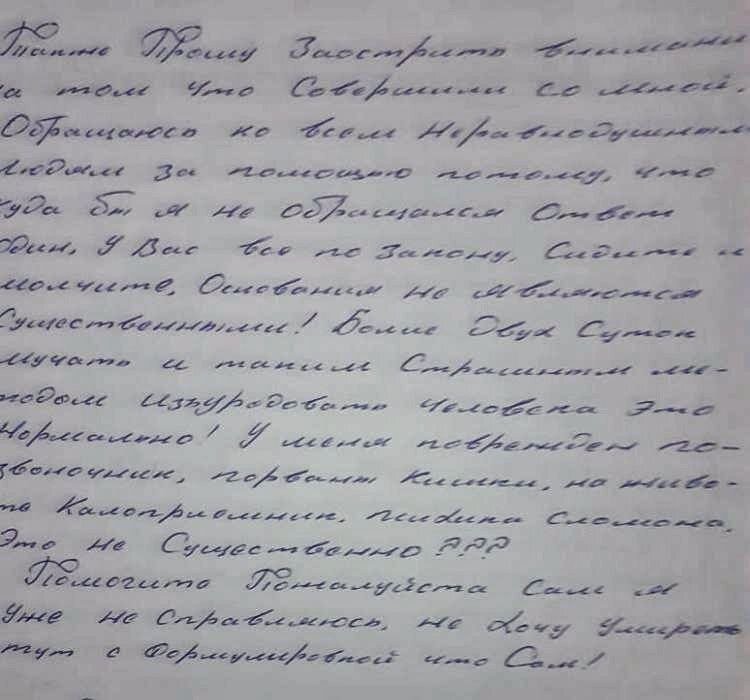 Также Прошу Заострить внимани
а том что Совершили со мной.
Обращаюсь ко всем Неравнодушным
людям за помощью потому, что
куда бы я не обращался Ответ
один, У Вас все по закону, Сидите и
молчите, Основания не являются
Существенными! Более Двух Суток
мучать и таким Страшным ме-
тодом изъуродовать человека это
Нормально! У меня поврежден по-
звоночник, порваны Кишки, на живо-
те Калоприемник, психика сломана,
Это не Существенно???
Помогите Пожалуйста Сам я
уже не справляюсь, не Хочу умирать
тут с Формулировкой что Сам!